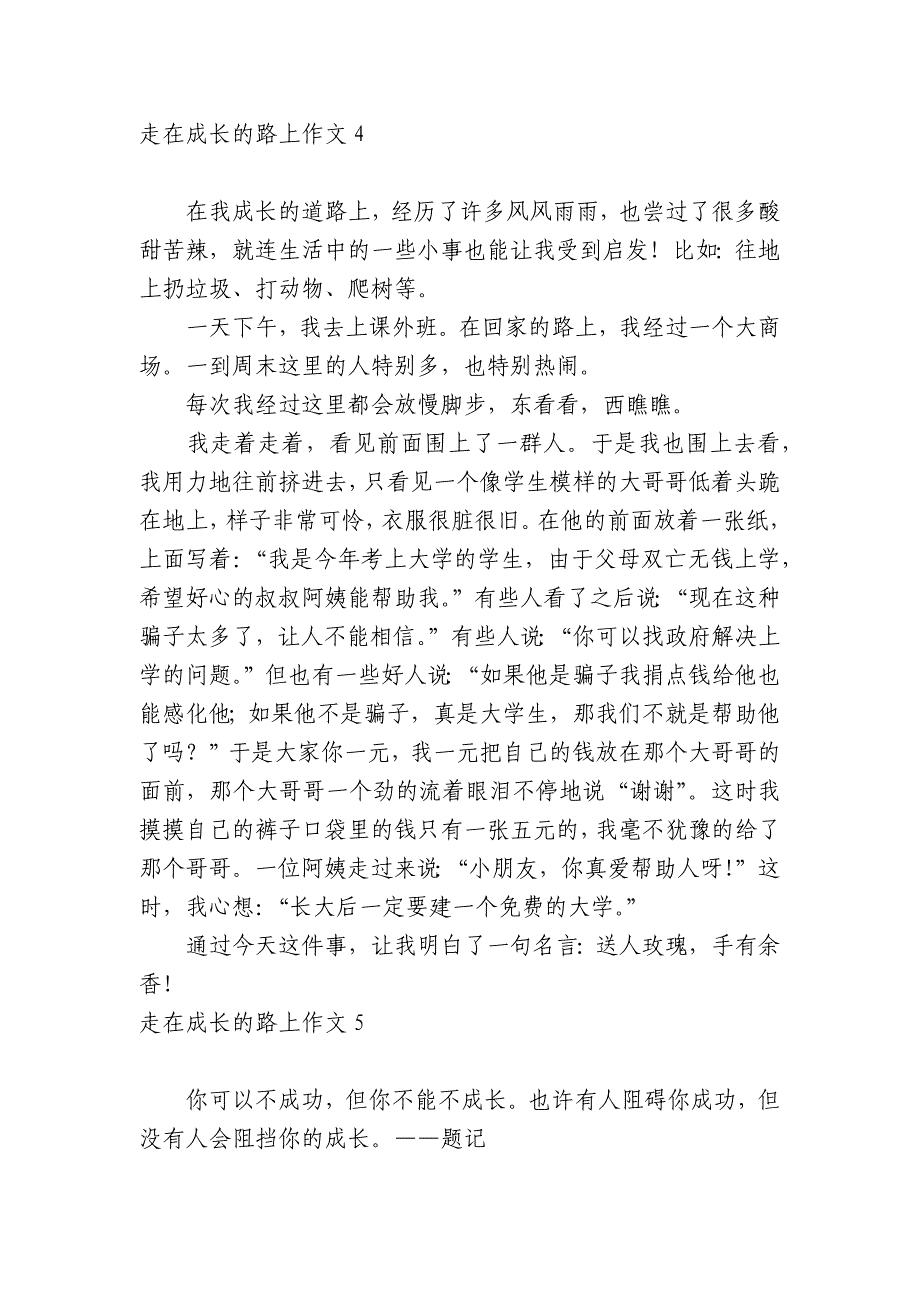 走在成长的路上作文 4
在我成长的道路上，经历了许多风风雨雨，也尝过了很多酸
甜苦辣，就连生活中的一些小事也能让我受到启发！比如：往地
上扔垃圾、打动物、爬树等。
一天下午，我去上课外班。在回家的路上，我经过一个大商
场。一到周末这里的人特别多，也特别热闹。
每次我经过这里都会放慢脚步，东看看，西瞧瞧。
我走着走着，看见前面围上了一群人。于是我也围上去看，
我用力地往前挤进去，只看见一个像学生模样的大哥哥低着头跪
在地上，样子非常可怜，衣服很脏很旧。在他的前面放着一张纸，
上面写着：“我是今年考上大学的学生，由于父母双亡无钱上学，
希望好心的叔叔阿姨能帮助我。”有些人看了之后说：“现在这种
骗子太多了，让人不能相信。”有些人说：“你可以找政府解决上
学的问题。”但也有一些好人说：“如果他是骗子我捐点钱给他也
能感化他；如果他不是骗子，真是大学生，那我们不就是帮助他
了吗？”于是大家你一元，我一元把自己的钱放在那个大哥哥的
面前，那个大哥哥一个劲的流着眼泪不停地说“谢谢”。这时我
摸摸自己的裤子口袋里的钱只有一张五元的，我毫不犹豫的给了
那个哥哥。一位阿姨走过来说：“小朋友，你真爱帮助人呀！”这
时，我心想：“长大后一定要建一个免费的大学。”
通过今天这件事，让我明白了一句名言：送人玫瑰，手有余
香！
走在成长的路上作文 5
你可以不成功，但你不能不成长。也许有人阻碍你成功，但
没有人会阻挡你的成长。——题记